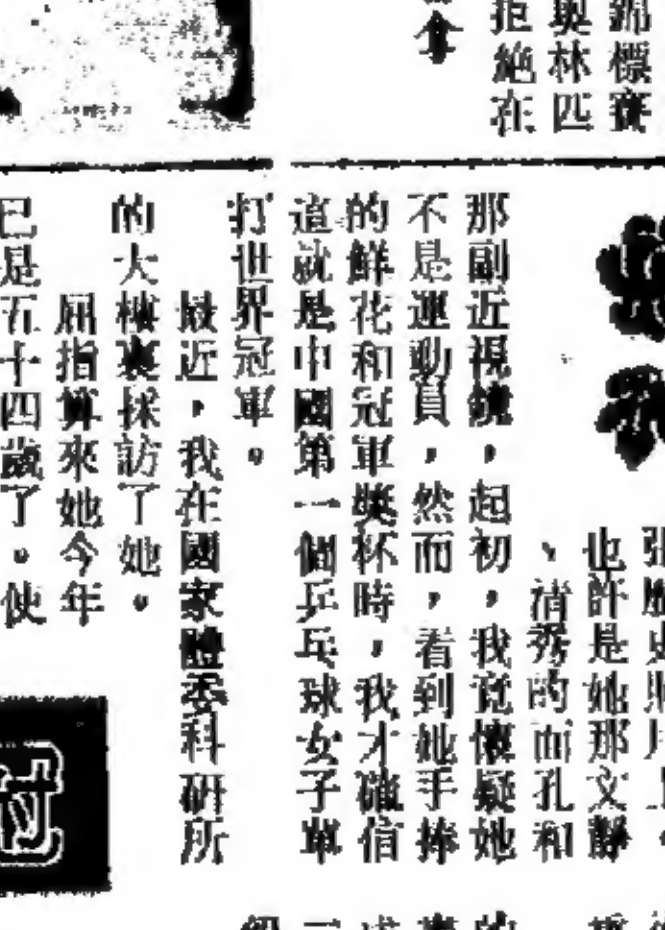 錦標賽
奧林匹
拒絕在
也許是她那文靜
、清秀的面孔和
那副近視鏡，起初，我竟懷疑她
不是運動員，然而，看到她手捧
的鮮花和冠軍獎杯時，我才確信
這就是中國第一個乒乓球女子單
打世界冠軍。
最近，我在國家體委科研所
的大樓裏採訪了她。
屈指算來她今年
已是五十四歲了。使